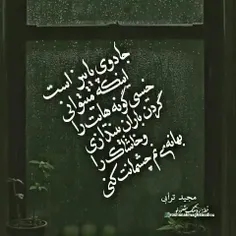 جادوی پاییز است
اینکه میتوانی
خیسی گونه هایت را
گردن باران بیندازی
و خاشاک را
بهانه‌ی نم چشمانت کنی
مجید ترابی